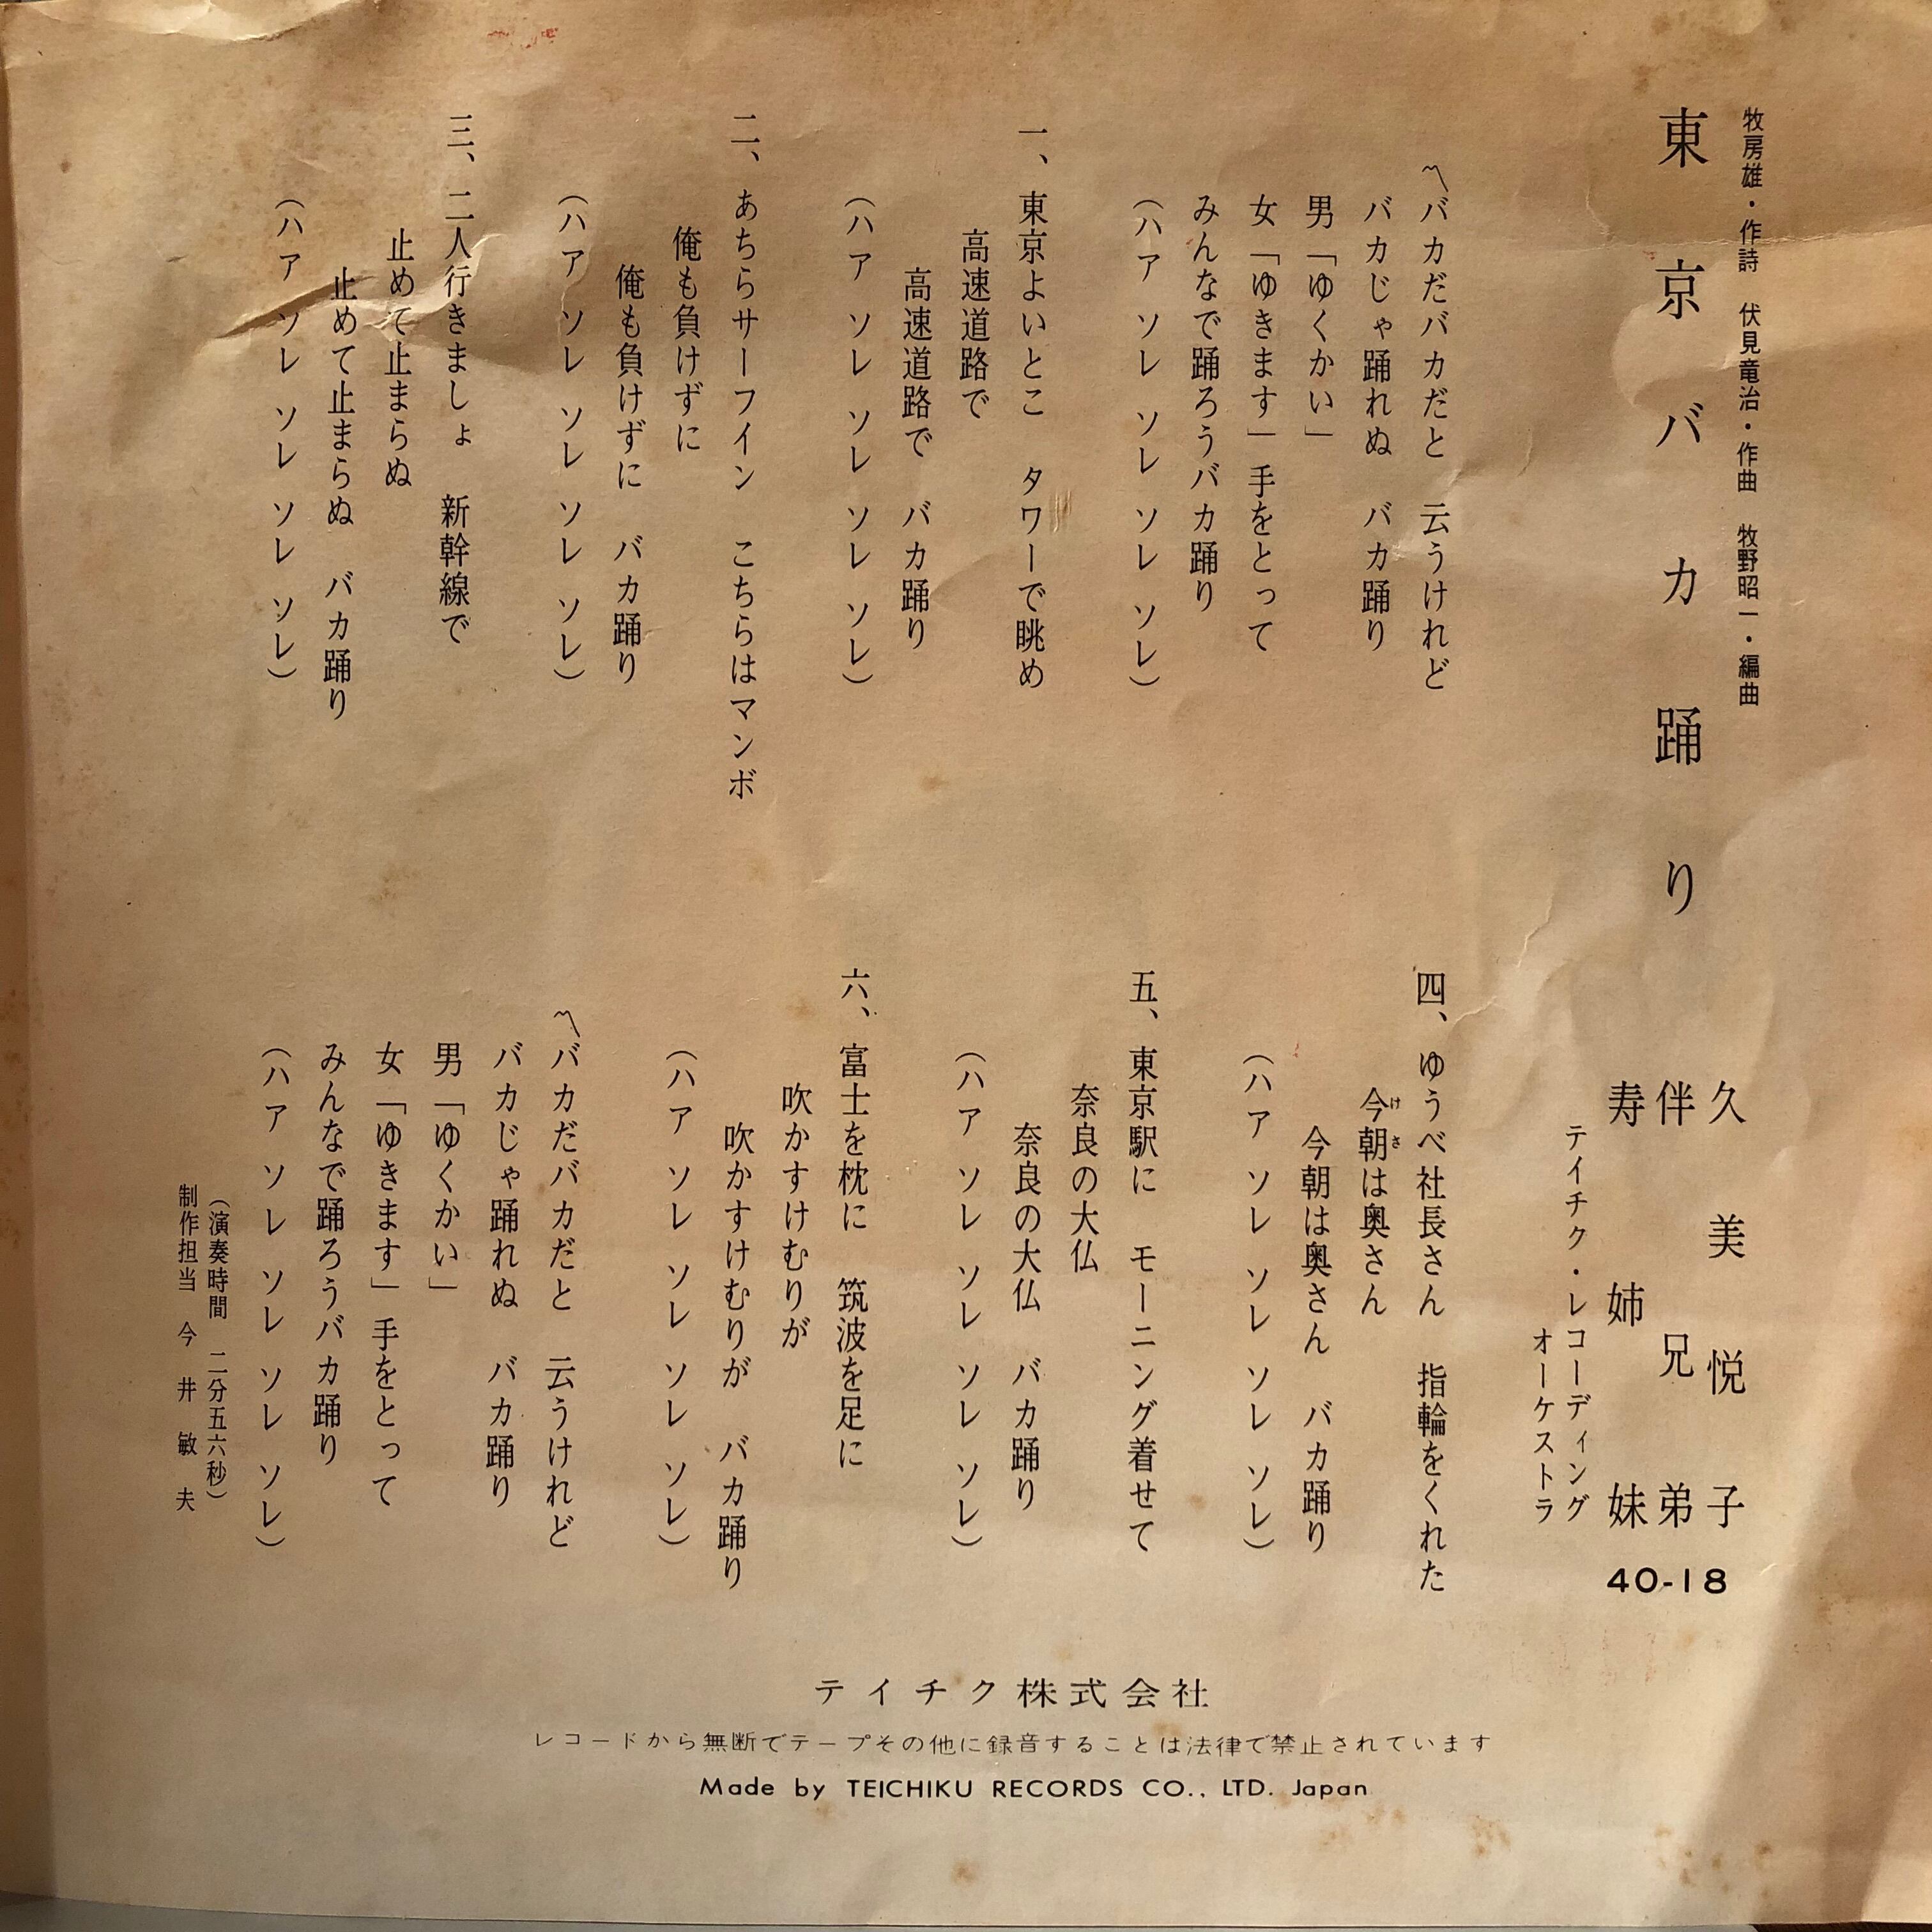 牧房雄・作詩 伏見竜治・作曲 牧野昭一・編曲
東京バカ踊り
久美悦子
伴兄弟
寿姉妹
40-18
テイチク・レコーディング
オーケストラ
〽バカだバカだと 云うけれど
バカじゃ踊れぬ バカ踊り
男「ゆくかい」
女「ゆきます」手をとって
みんなで踊ろうバカ踊り
(ハア ソレ ソレ ソレ ソレ)
一、東京よいとこ タワーで眺め
高速道路で
高速道路で バカ踊り
(ハア ソレ ソレ ソレ ソレ)
二、あちらサーフイン こちらはマンボ
俺も負けずに
俺も負けずに バカ踊り
(ハア ソレ ソレ ソレ ソレ)
三、二人行きましょ 新幹線で
止めて止まらぬ
止めて止まらぬ バカ踊り
(ハア ソレ ソレ ソレ ソレ)
四、ゆうべ社長さん 指輪をくれた
今朝は奥さん
けさ
今朝は奥さん バカ踊り
(ハア ソレ ソレ ソレ ソレ)
五、東京駅に モーニング着せて
奈良の大仏
奈良の大仏 バカ踊り
(ハア ソレ ソレ ソレ ソレ)
六、富士を枕に 筑波を足に
吹かすけむりが
吹かすけむりが バカ踊り
(ハア ソレ ソレ ソレ ソレ)
〽バカだバカだと 云うけれど
バカじゃ踊れぬ バカ踊り
男「ゆくかい」
女「ゆきます」手をとって
みんなで踊ろうバカ踊り
(ハア ソレ ソレ ソレ ソレ)
(演奏時間 二分五六秒)
制作担当 今井敏夫
テイチク株式会社
レコードから無断でテープその他に録音することは法律で禁止されています
Made by TEICHIKU RECORDS CO., LTD. Japan